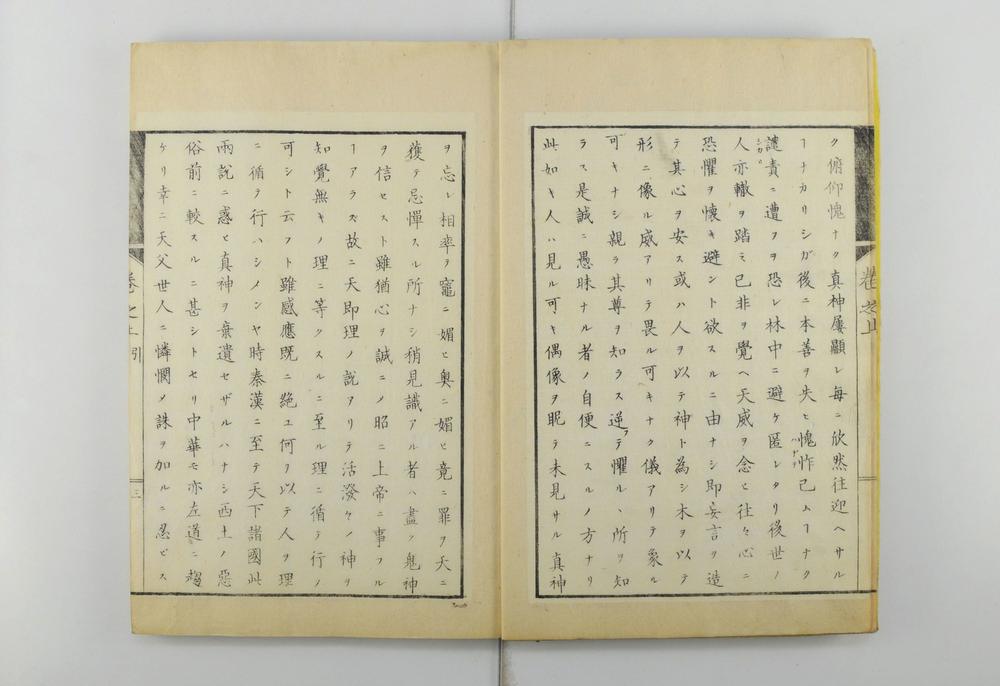 ク俯仰愧ナク真神屢顯レ毎ニ欣然往迎ヘサル
ヿナカリシガ後ニ本善ヲ失ヒ愧怍已ムヿナク
譴責ニ遭フヲ恐レ林中ニ避ケ匿レタリ後世ノ
人亦轍ヲ踏ミ已非ヲ覺ヘ天威ヲ念ヒ往々心ニ
恐懼ヲ懐キ避ント欲スルニ由ナシ即妄言ヲ造
テ其心ヲ安ス或ハ人ヲ以テ神ト為シ木ヲ以テ
形ニ像ル威アリテ畏ル可キナク儀アリテ象ル
可キナシ親ラ其尊ヲ知ラス逆テ懼ルヽ所ヲ知
ラス是誠ニ愚昧ナル者ノ自便ニスルノ方ナリ
此如キ人ハ見ル可キ偶像ヲ眤テ未見サル真神
ヲ忘レ相率ヲ竈ニ媚ヒ奥ニ媚ヒ竟ニ罪ヲ天ニ
獲テ忌憚スル所ナシ稍見識アル者ハ盡ク鬼神
ヲ信セスト雖猶心ヲ誠ニメ昭ニ上帝ニ事フル
ヿアラズ故ニ天即理ノ説アリテ活潑々ノ神ヲ
知覺無キノ理ニ等クスルニ至ル理ニ循テ行ノ
可シト云フト雖感應既ニ絶ユ何ヲ以テ人ヲ理
ニ循テ行ハシメンヤ時秦漢ニ至テ天下諸國此
兩説ニ惑ヒ真神ヲ棄遺セザルハナシ西土ノ惡
俗前ニ較スルニ甚シトセリ中華モ亦左道ニ趨
ケリ幸ニ天父世人ニ憐憫メ誅ヲ加ルニ忍ヒス
卷之上引
三